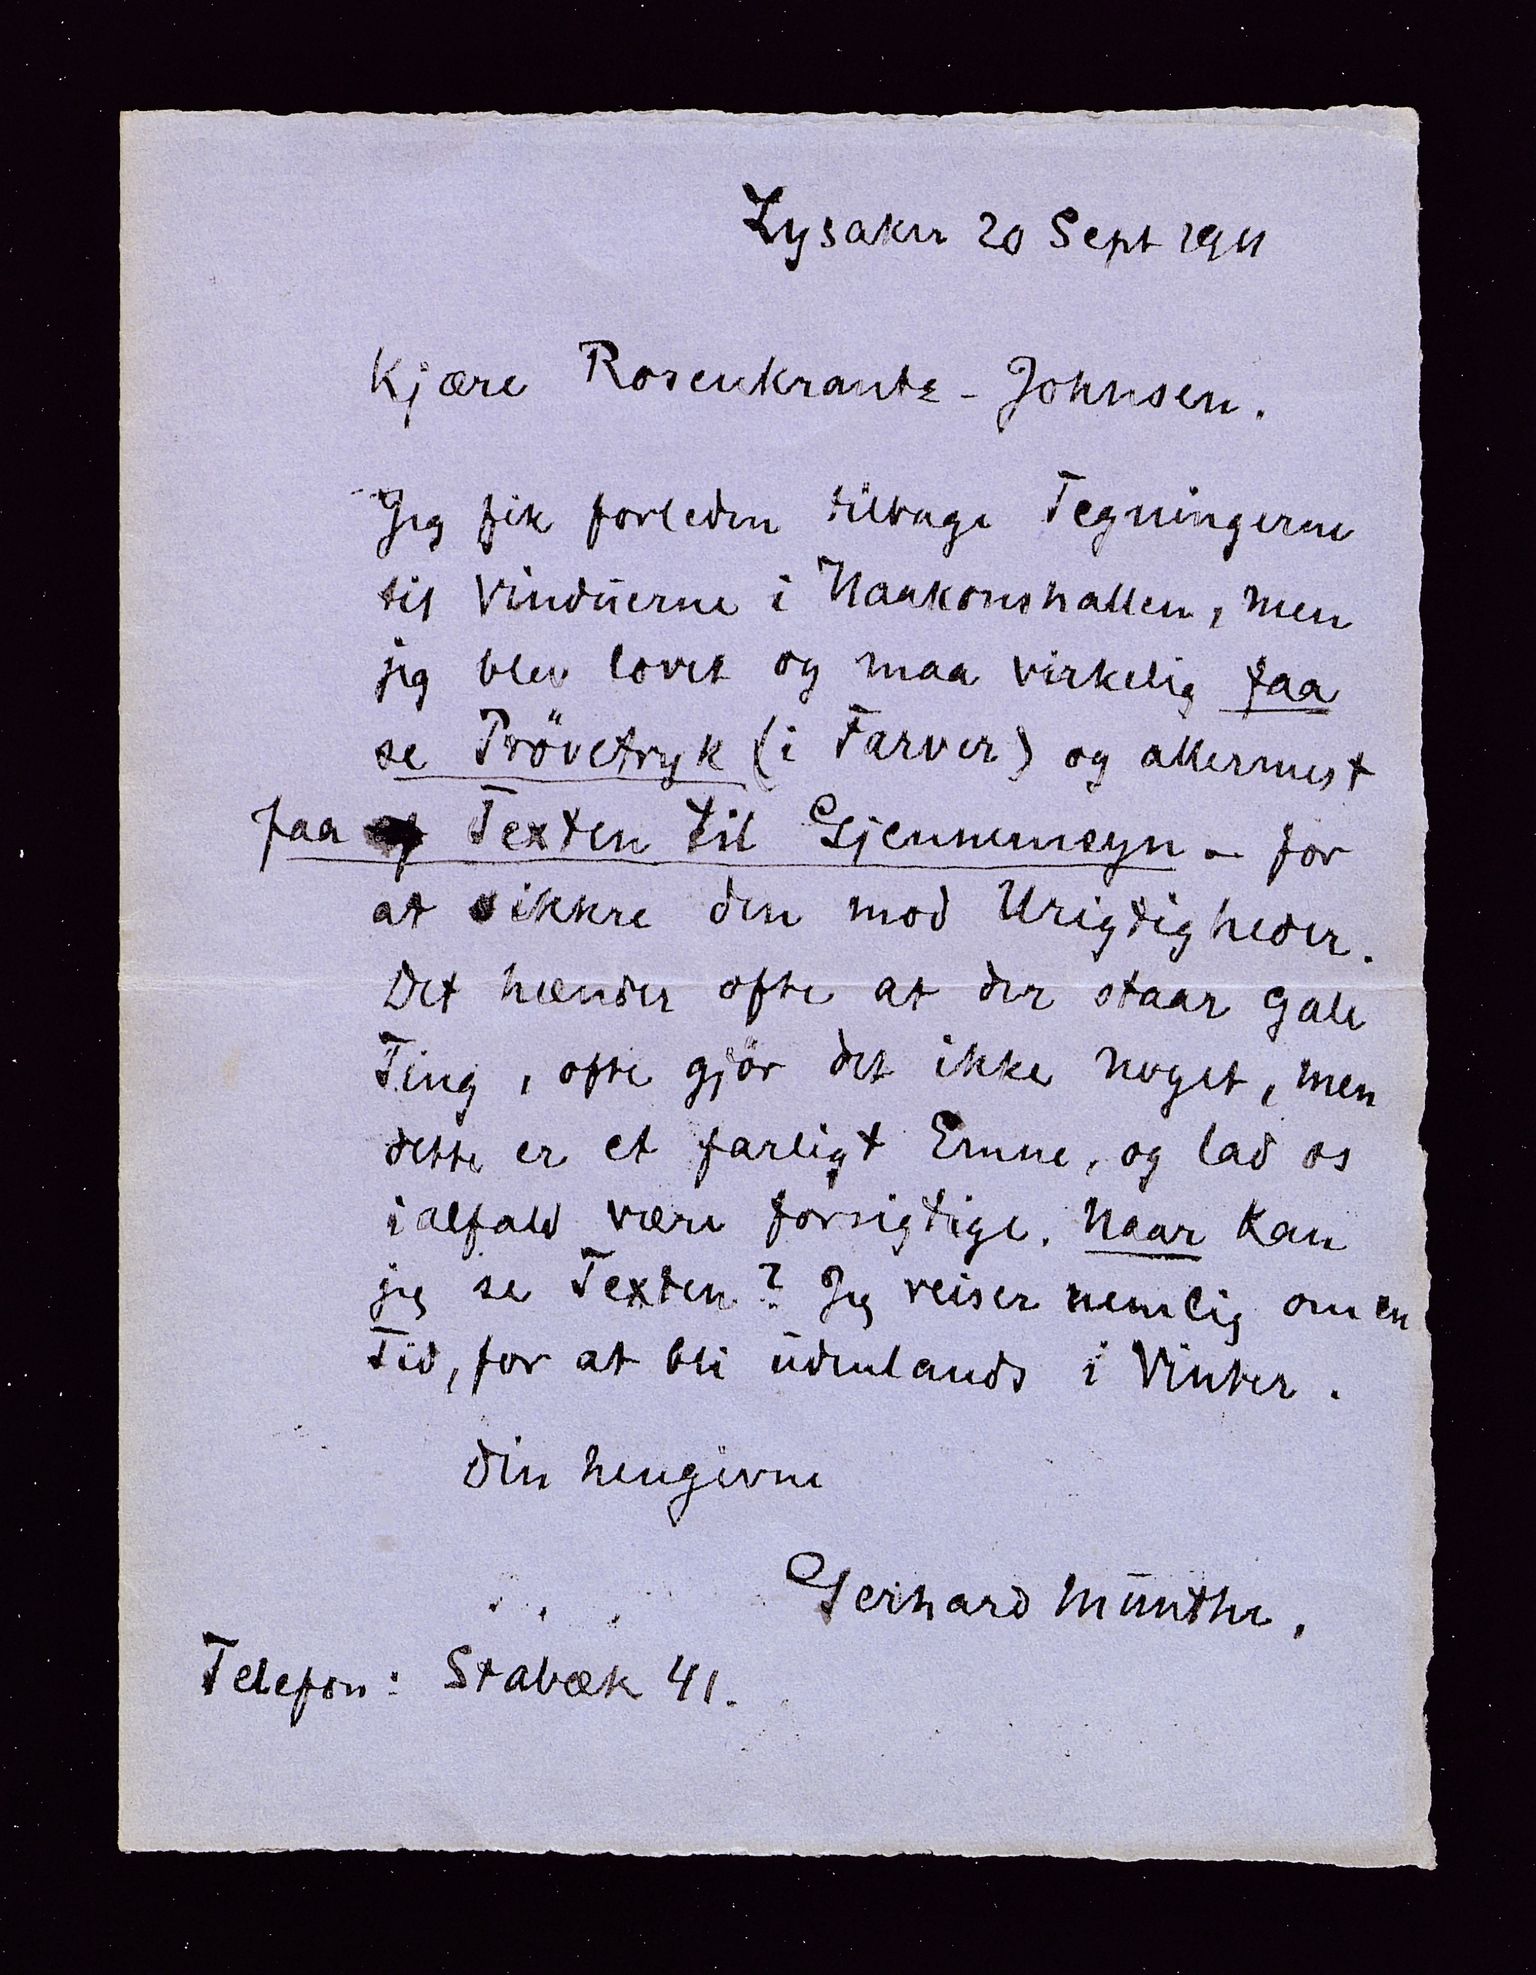 Lysaker 20 Sept 1911
Kjære Rosenkrantz-Johnsen.
Jeg fik forleden tilbage Tegningerne
til Vinduerne i Haakonshallen, men
jeg blev lovet og maa virkelig faa
se Prövetryk (i Farver) og allermest
faa Texten til Gjennemsyn - for
at sikkre den mod Urigtigheder.
Det hænder ofte at der staar gale
Ting, ofte gjör det ikke noget, men
dette er et farligt Emne, og lad os
ialfald være forsigtige. Naar kan
jeg se Texten? Jeg reiser nemlig om en
Tid, for at bli udenlands i Vinter.
Din hengivne
Gerhard Munthe.
Telefon: Stabæk 41.